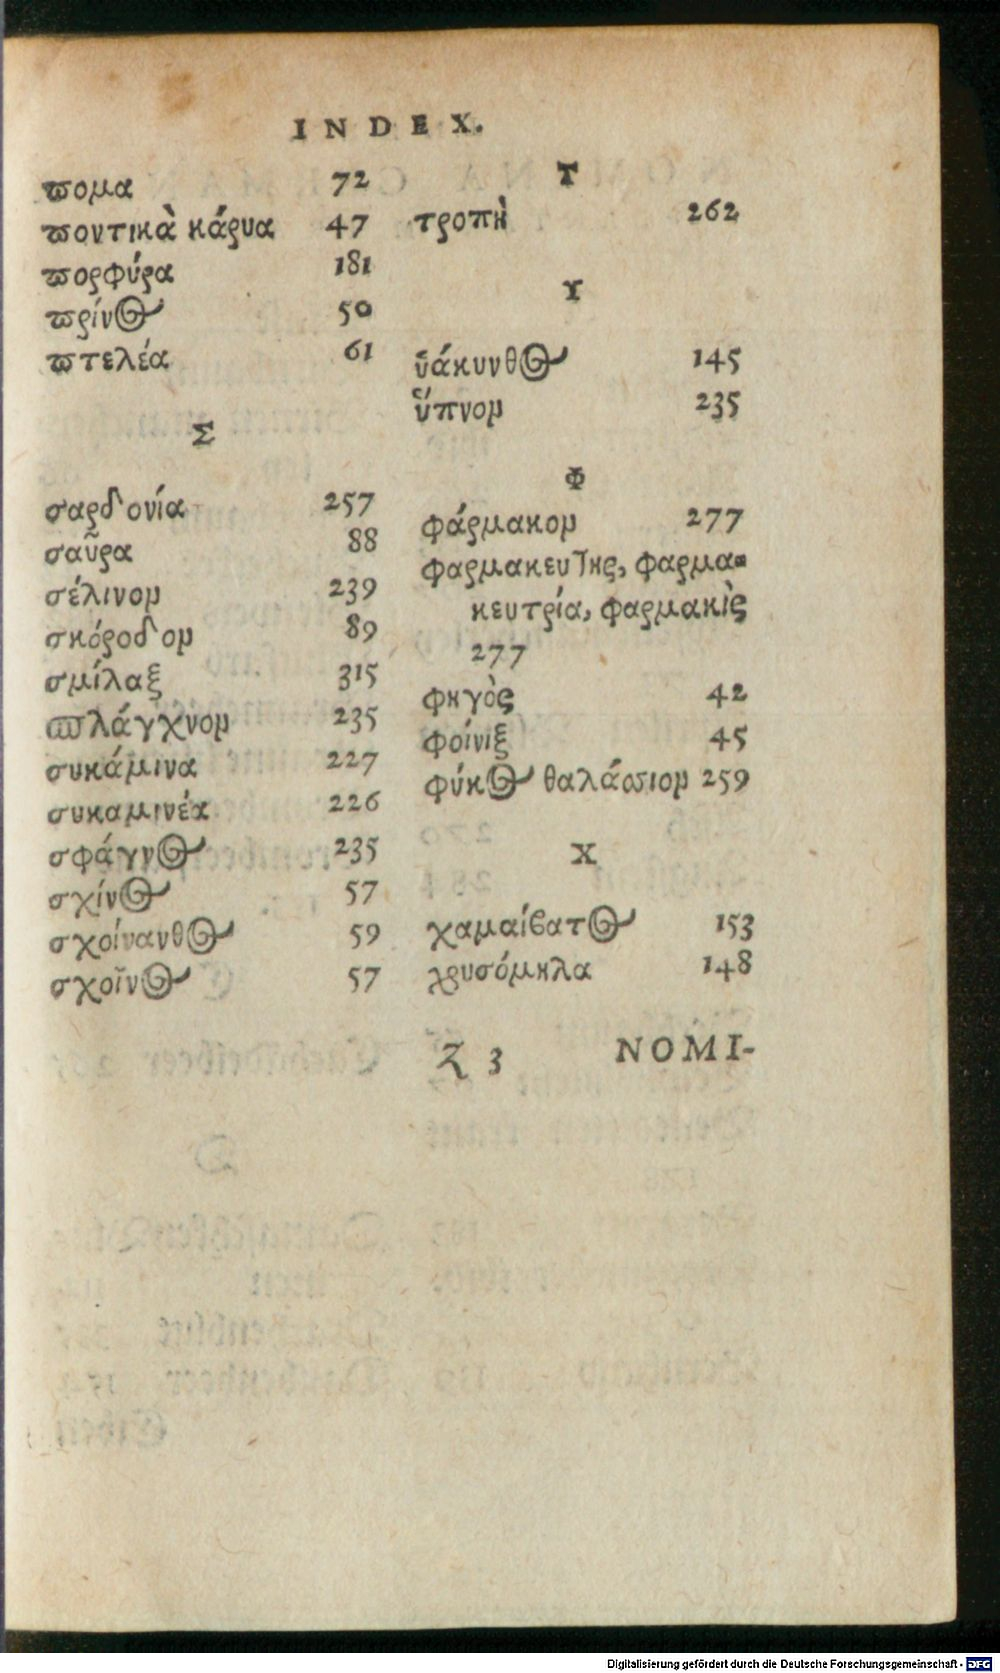 INDEX.
πομα 72
ποντικὰ κάρυα 47
πορφύρα 181
πρίνος 50
πτελέα 61
Σ
σαρδονία 257
σαῦρα 88
σέλινον 239
σκόροδον 89
σμίλαξ 315
σπλάγχνον 235
συκάμινα 227
συκαμινέα 226
σφάγνος 235
σχίνος 57
σχοίνανθος 59
σχοῖνος 57
Τ
τροπὴ 262
Υ
ὑάκυνθος 145
ὕπνον 235
Φ
φάρμακον 277
φαρμακευτης, φαρμα-
κευτρία, φαρμακὶς
277
φηγὸς 42
φοίνιξ 45
φύκος θαλάσσιον 259
Χ
χαμαίβατος 153
χρυσόμηλα 148
Z 3 NOMI-
Digitalisierung gefördert durch die Deutsche Forschungsgemeinschaft - DFG